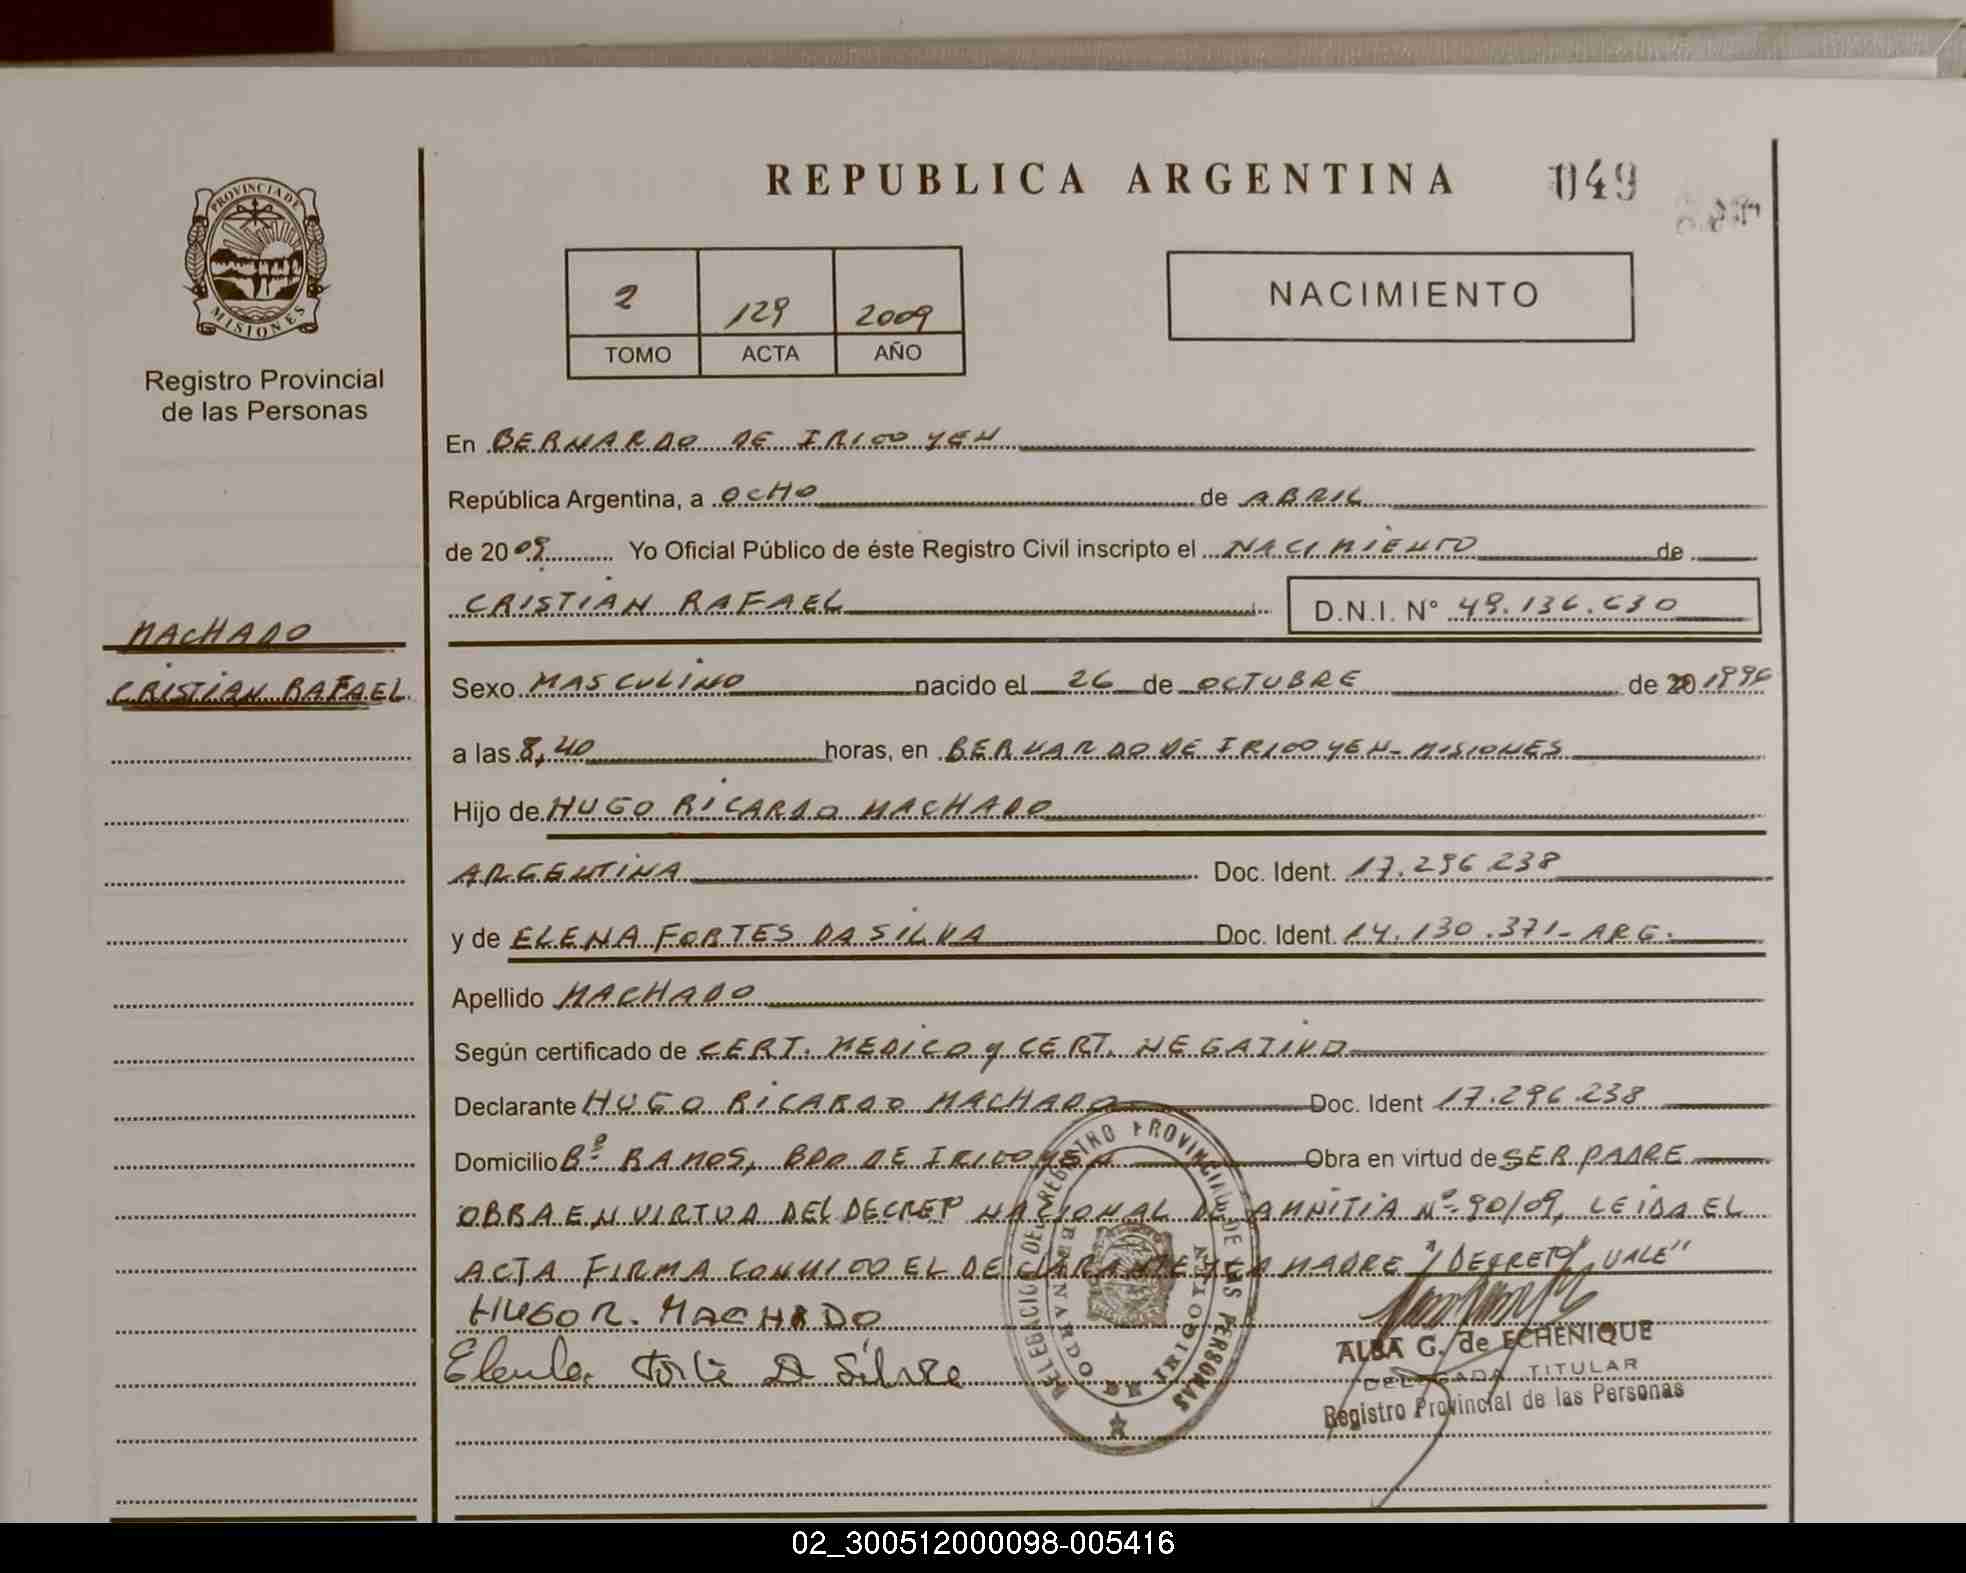 REPUBLICA ARGENTINA 049
PROVINCIA DE
MISIONES
Registro Provincial
de las Personas
2 129 2009
TOMO ACTA AÑO
NACIMIENTO
En BERNARDO DE IRIGOYEN
República Argentina, a OCHO de ABRIL
de 2009 Yo Oficial Público de éste Registro Civil inscripto el NACIMIENTO de
CRISTIAN RAFAEL D.N.I. N° 49.136.630
MACHADO
CRISTIAN RAFAEL
Sexo MASCULINO nacido el 26 de OCTUBRE de 20 1996
a las 8,40 horas, en BERNARDO DE IRIGOYEN - MISIONES
Hijo de HUGO RICARDO MACHADO
ARGENTINA Doc. Ident. 17.296.238
y de ELENA FORTES DA SILVA Doc. Ident. 14.130.371 - ARG.
Apellido MACHADO
Según certificado de CERT. MEDICO y CERT. NEGATIVO
Declarante HUGO RICARDO MACHADO Doc. Ident 17.296.238
Domicilio Bº RAMOS, BDO DE IRIGOYEN Obra en virtud de SER PADRE
OBRA EN VIRTUD DEL DECRETO NACIONAL DE AMNITIA Nº 90/09, LEIDA EL
ACTA FIRMA CONMIGO EL DECLARANTE Y LA MADRE "/DECRETO/ VALE"
HUGO R. MACHADO
DELEGACIO DEL REGISTRO PROVINCIAL DE LAS PERSONAS
BERNARDO DE IRIGOYEN
ALBA G. de ECHENIQUE
DELEGADA TITULAR
Registro Provincial de las Personas
02_300512000098-005416